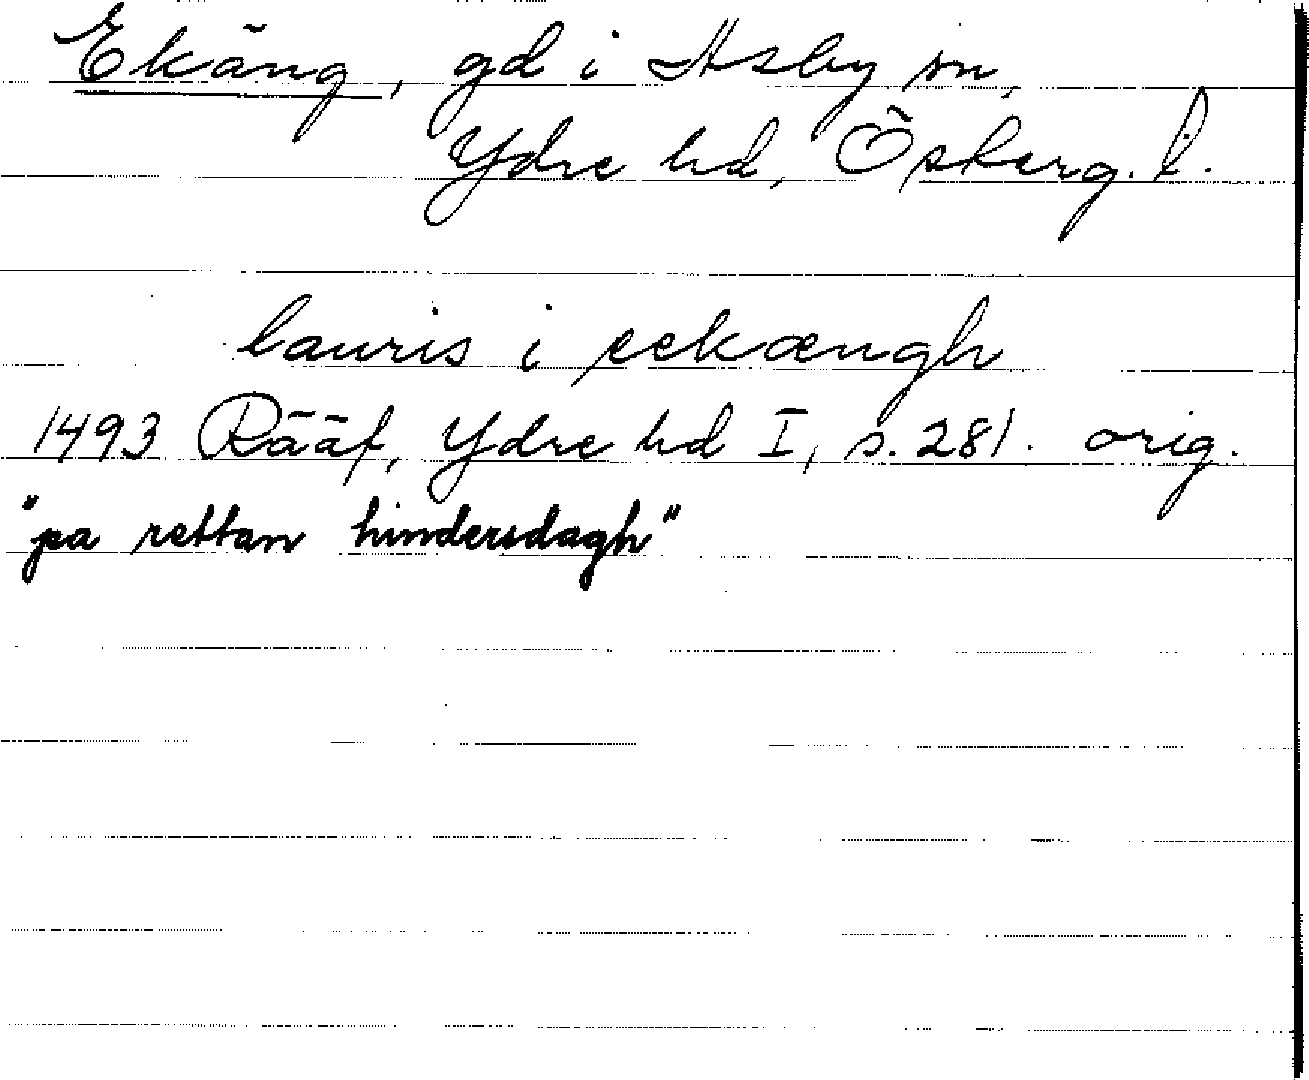 Ekäng, gd i Asby sn,
Ydre hd, Österg. l.
lauris i eekængh
1493 Rääf, Ydre hd I, s. 281. orig.
"pa rettan hindersdagh"